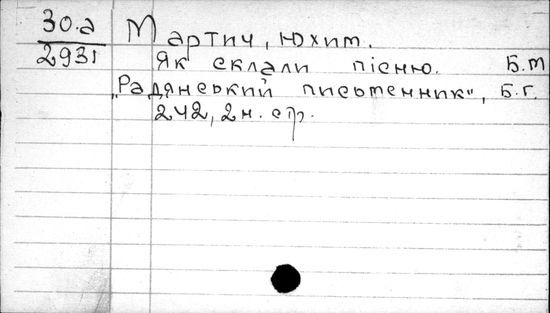 30.а
2931
Мартич, Юхим.
Як склали пісню. Б.м
„Радянський письменник", Б.г.
242, 2н. стр.